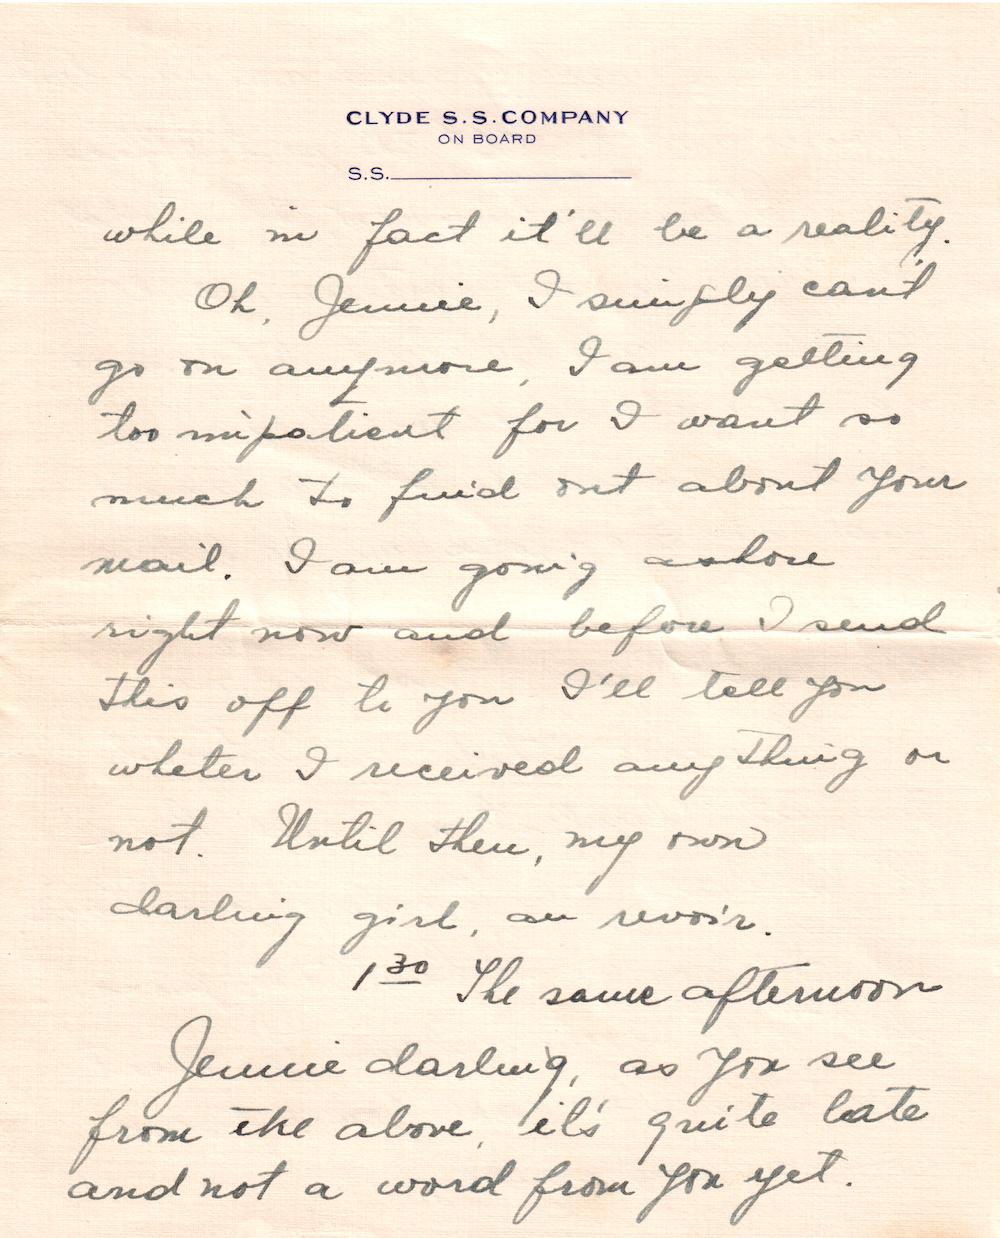 CLYDE S.S. COMPANY
ON BOARD
S.S.
while in fact it'll be a reality.
Oh, Jennie, I simply can't
go on anymore, I am getting
too impatient for I want so
much to find out about your
mail. I am going ashore
right now and before I send
this off to you I'll tell you
wheter I received anything or
not. Until then, my own
darling girl, au revoir.
1 30 The same afternoon
Jennie darling, as you see
from the above, it's quite late
and not a word from you yet.